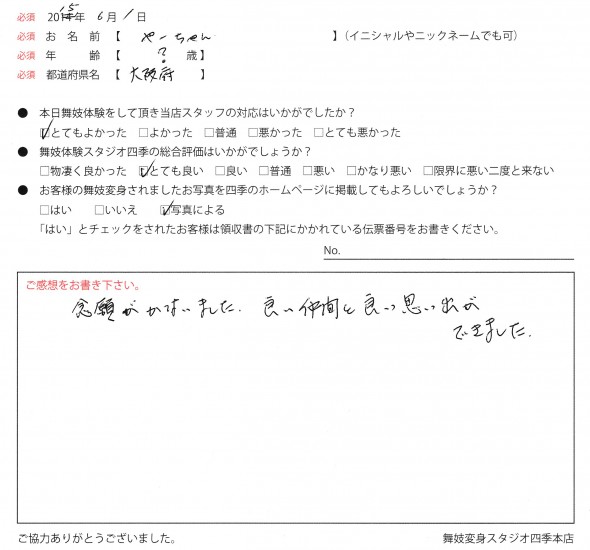 必須 2015年 6月 1日
必須 お 名 前 【 やーちゃん 】(イニシャルやニックネームでも可)
必須 年 齢 【 ? 歳】
必須 都道府県名 【 大阪府 】
● 本日舞妓体験をして頂き当店スタッフの対応はいかがでしたか？
☑とてもよかった □よかった □普通 □悪かった □とても悪かった
● 舞妓体験スタジオ四季の総合評価はいかがでしょうか？
□物凄く良かった ☑とても良い □良い □普通 □悪い □かなり悪い □限界に悪い二度と来ない
● お客様の舞妓変身されましたお写真を四季のホームページに掲載してもよろしいでしょうか？
□はい □いいえ ☑写真による
「はい」とチェックをされたお客様は領収書の下記にかかれている伝票番号をお書きください。
No.
ご感想をお書き下さい。
念願がかないました. 良い仲間と良い思い出が
できました.
ご協力ありがとうございました。 舞妓変身スタジオ四季本店